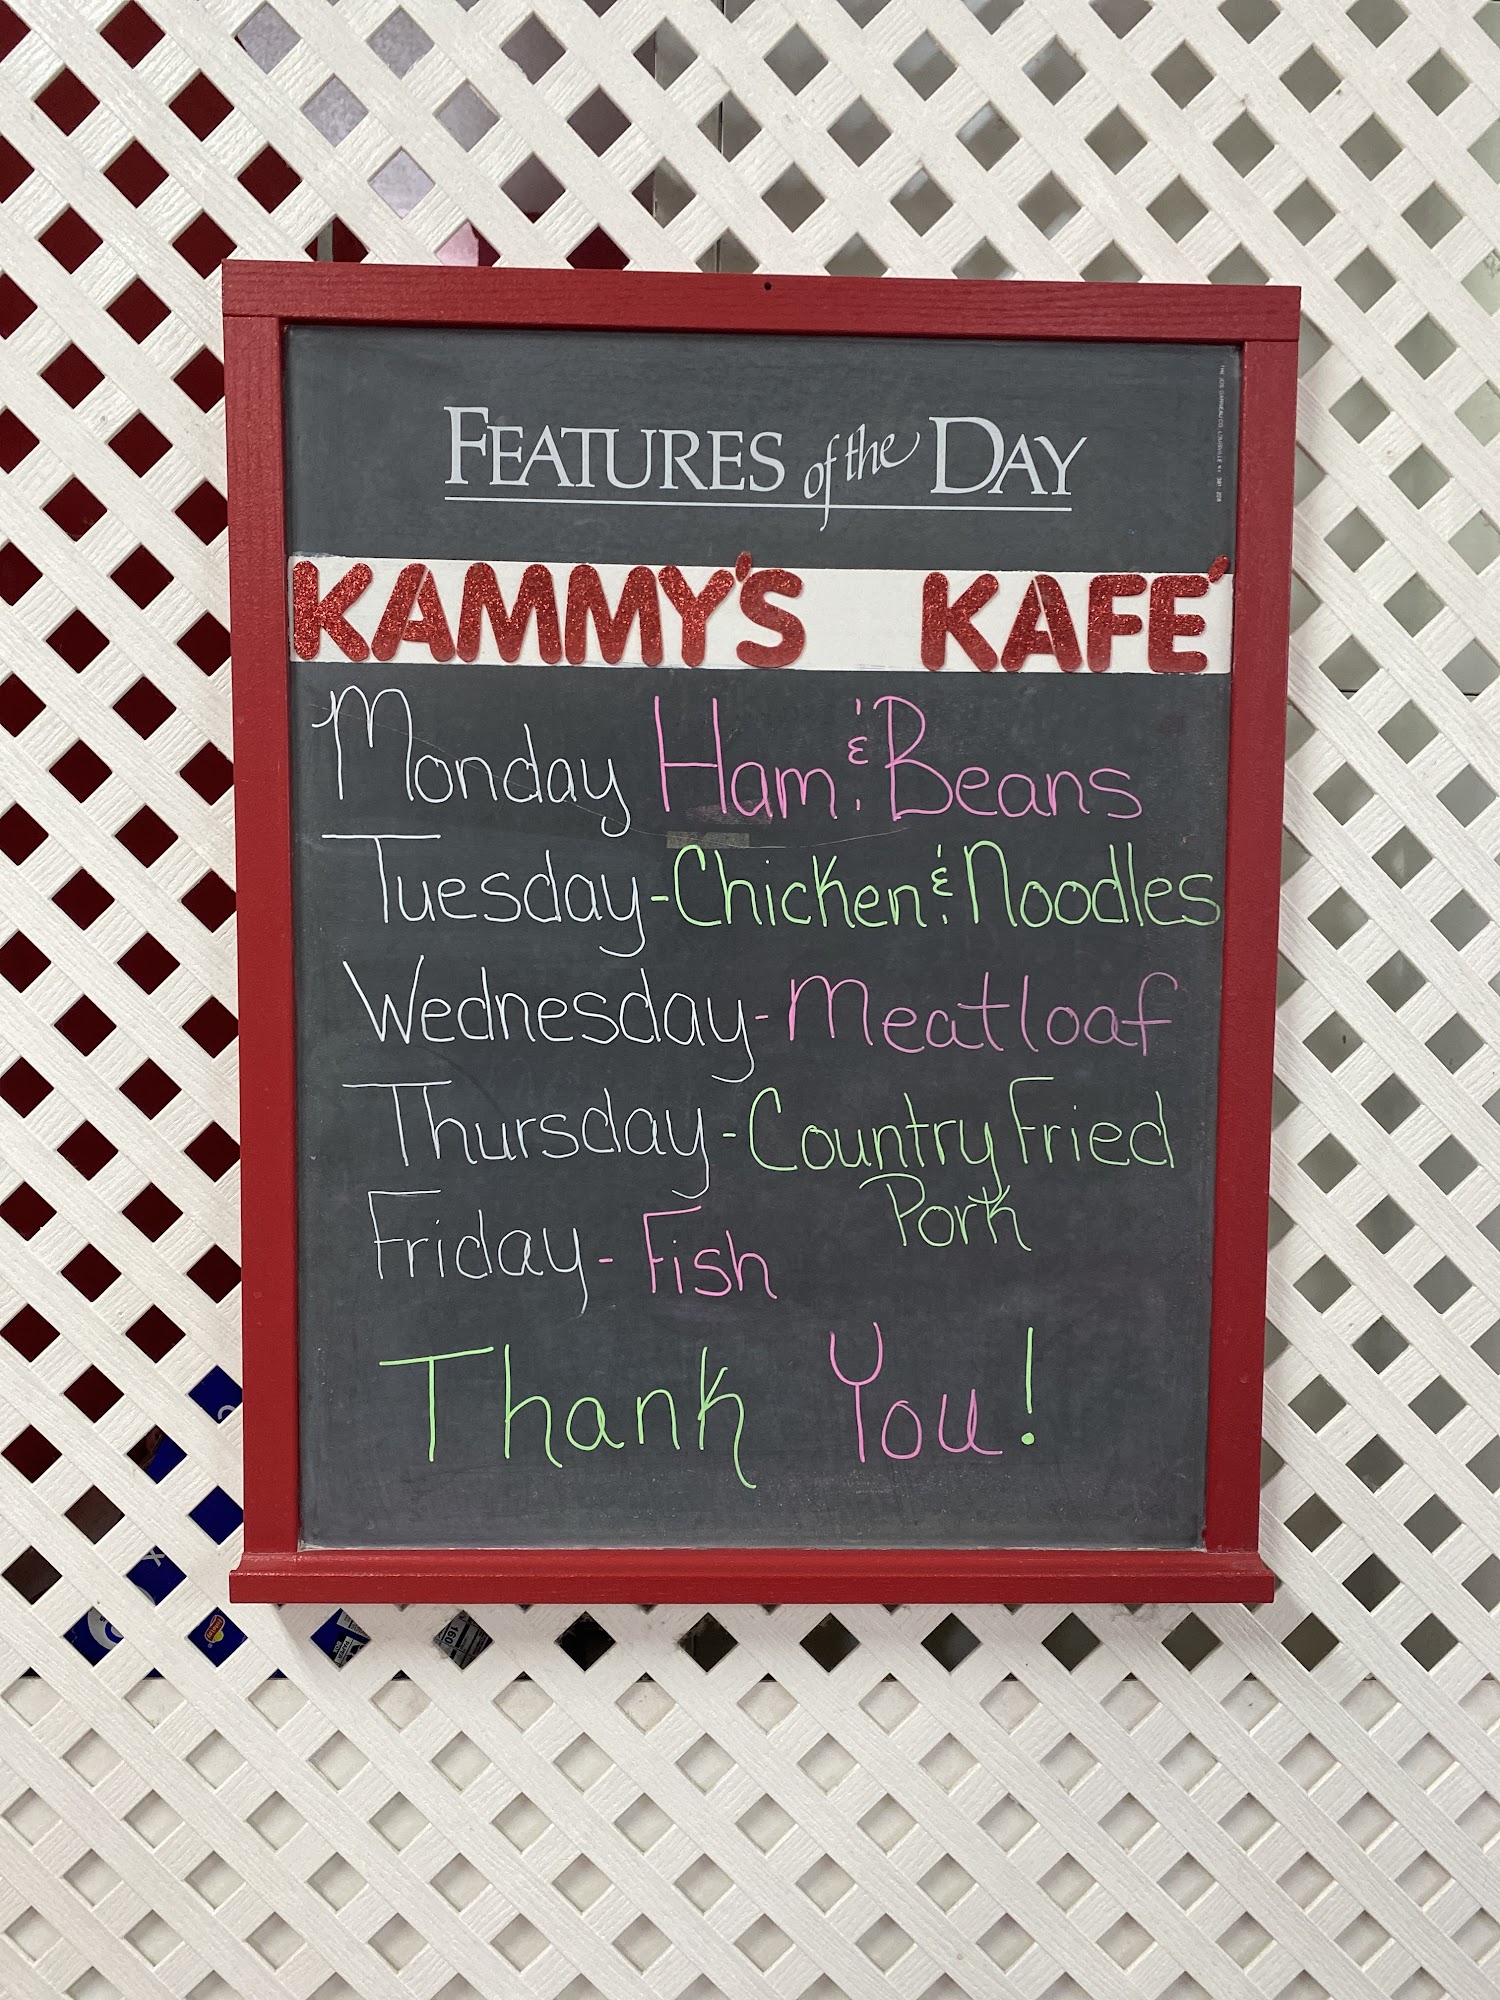 FEATURES of the DAY
KAMMY'S KAFÉ
Monday Ham & Beans
Tuesday - Chicken & Noodles
Wednesday - Meatloaf
Thursday - Country Fried
Pork
Friday - Fish
Thank You!
160